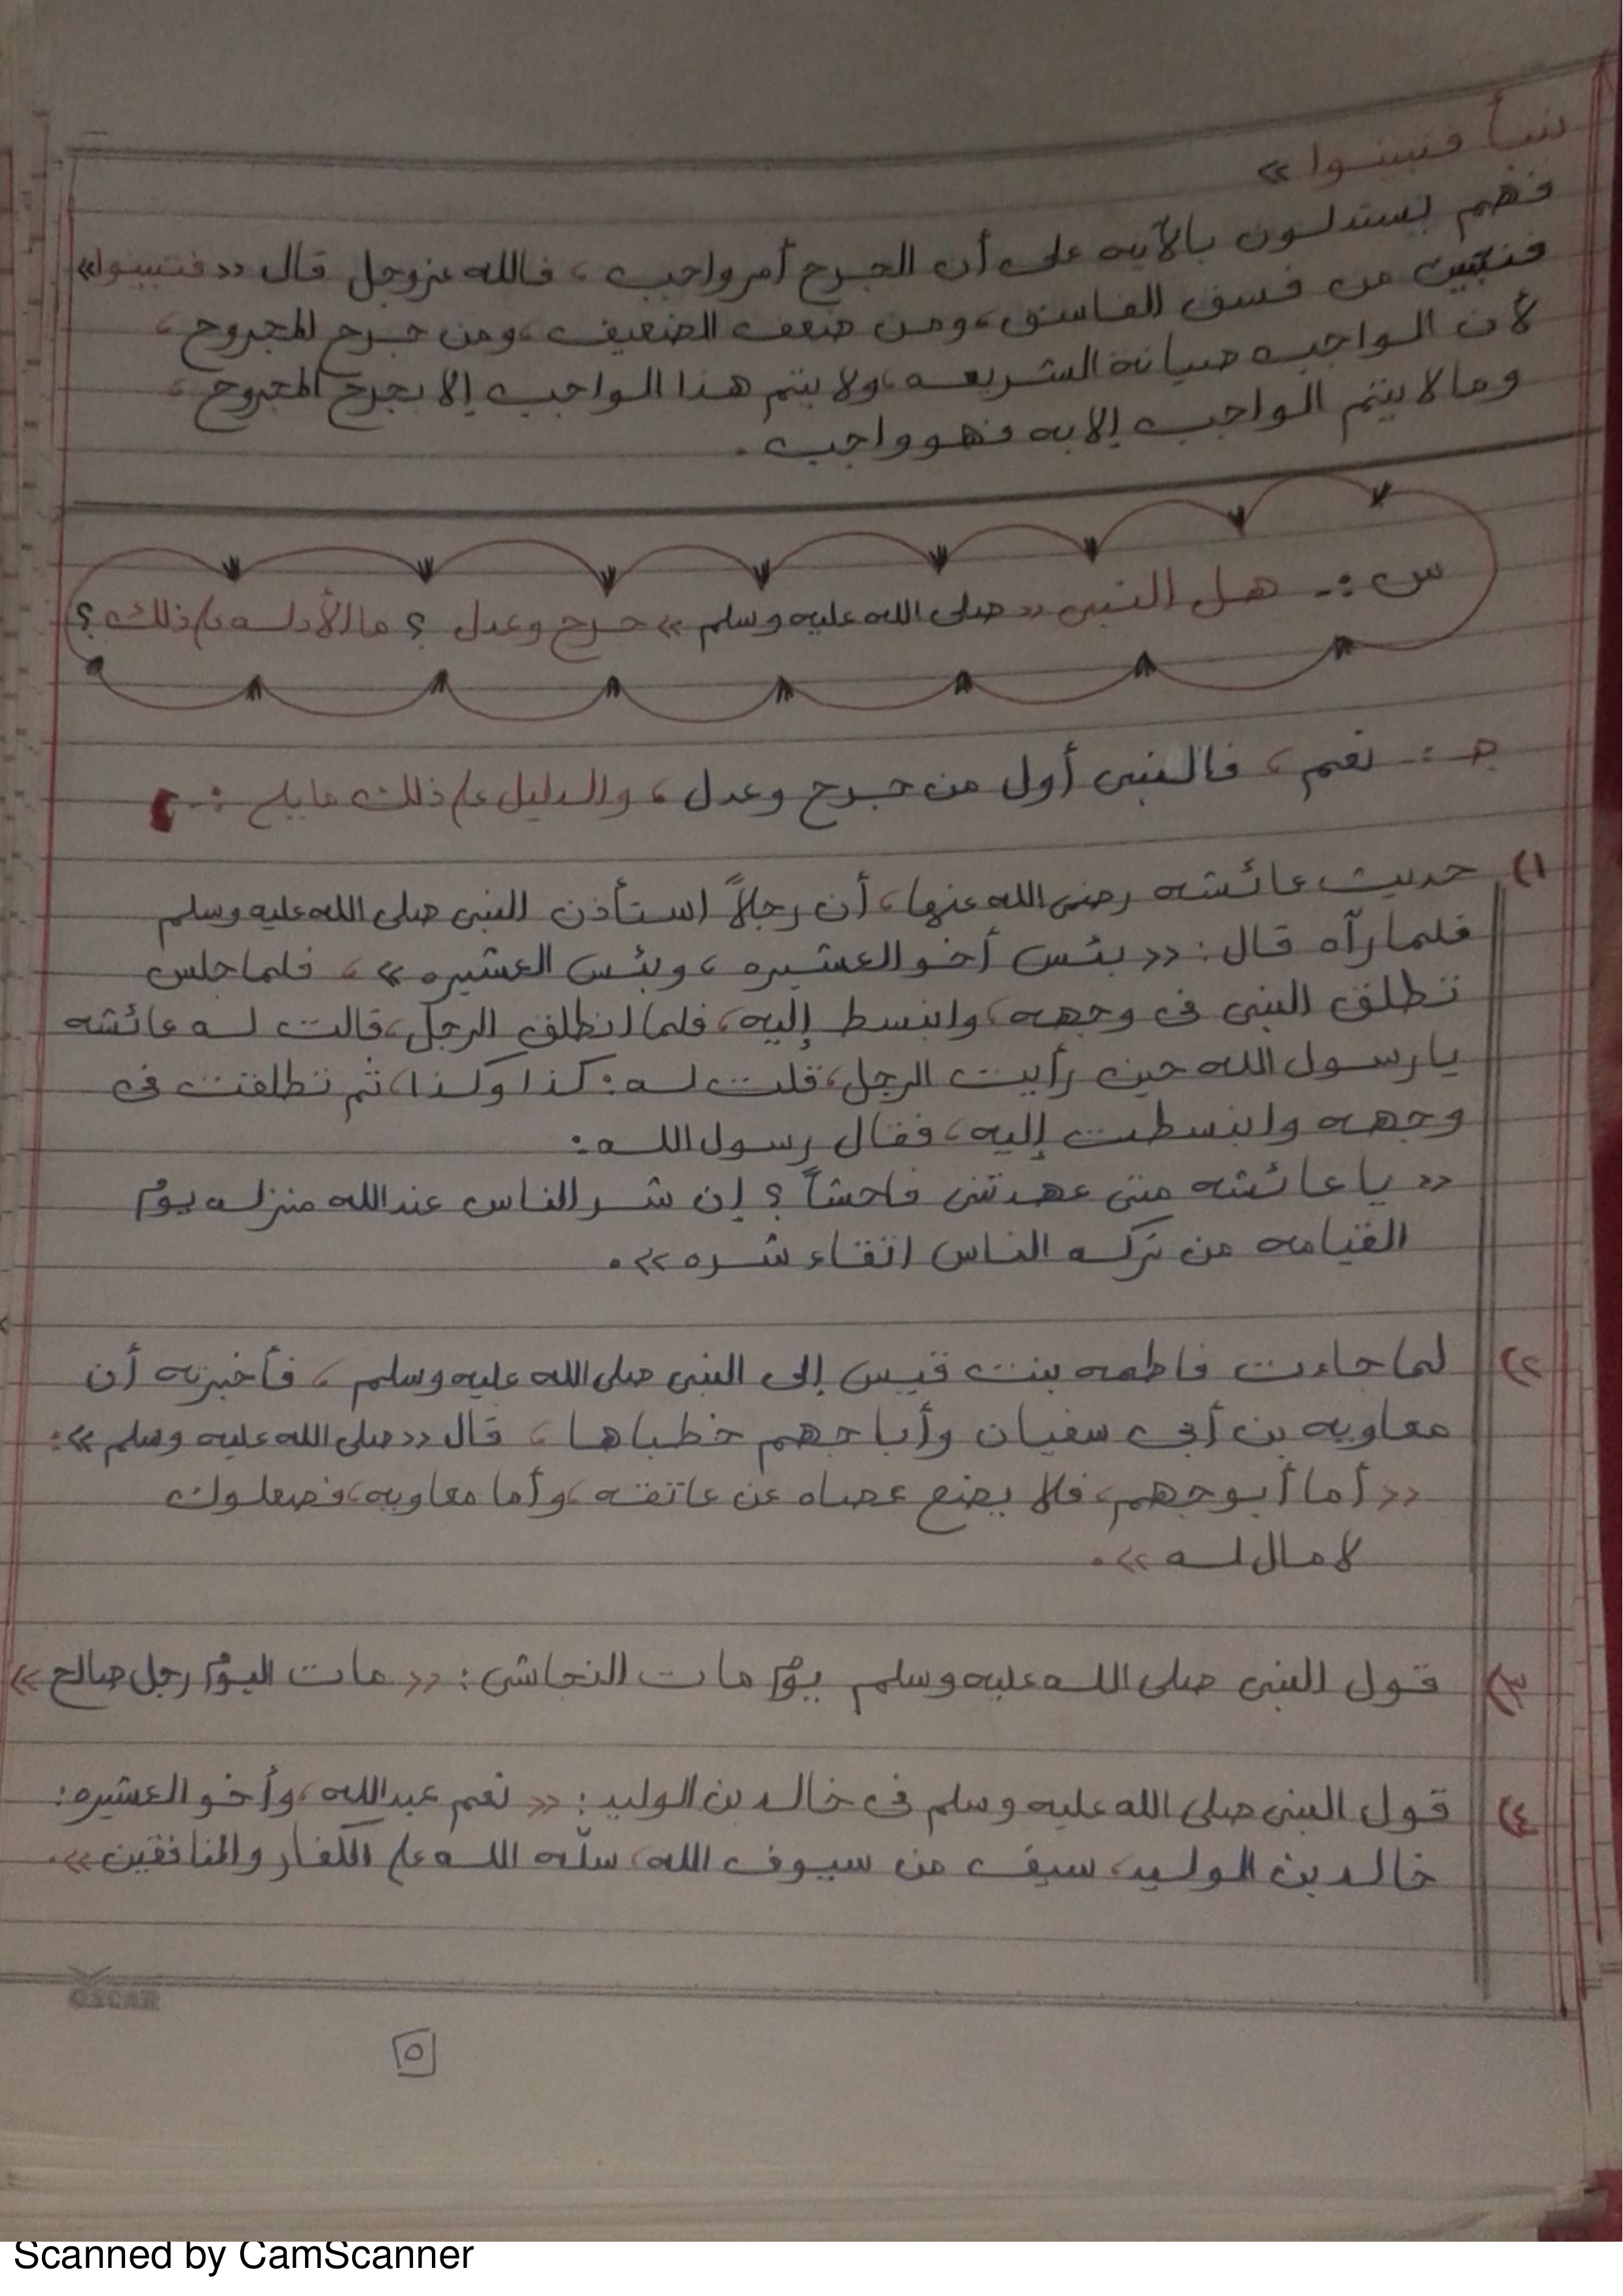 نبأ فتبينوا »
فهم يستدلون بالآيه على أن الجرح أمر واجب ، فالله عزوجل قال « فتبينوا»
فنتبين من فسق الفاسق ، ومن ضعف الضعيف ، ومن جرح المجروح ،
لأن الواجب صيانة الشريعه ، ولا يتم هذا الواجب إلا بجرح المجروح ،
وما لا يتم الواجب إلا به فهو واجب .
س :- هل النبى « صلى الله عليه وسلم » جرح وعدل ؟ ما الأدله على ذلك ؟
جـ :- نعم ، فالنبى أول من جرح وعدل ، والدليل على ذلك مايلى :-
١) حديث عائشه رضى الله عنها ، أن رجلاً استأذن النبى صلى الله عليه وسلم
فلما رآه قال : « بئس أخو العشيره ، وبئس العشيره » ، فلما جلس
تطلق النبى فى وجهه ، وانبسط إليه ، فلما انطلق الرجل ، قالت له عائشه
يا رسول الله حين رأيت الرجل ، قلت له : كذا وكذا ، ثم تطلقت فى
وجهه وانبسطت إليه ، فقال رسول الله :
« يا عائشه متى عهدتنى فاحشاً ؟ إن شر الناس عند الله منزله يوم
القيامه من تركه الناس اتقاء شره » .
٢) لما جاءت فاطمه بنت قيس إلى النبى صلى الله عليه وسلم ، فأخبرته أن
معاويه بن أبى سفيان وأبا جهم خطباها ، قال « صلى الله عليه وسلم » :
« أما أبو جهم ، فلا يضع عصاه عن عاتقه ، وأما معاويه ، فصعلوك
لا مال له » .
٣) قول النبى صلى الله عليه وسلم يوم مات النجاشى : « مات اليوم رجل صالح »
٤) قول النبى صلى الله عليه وسلم فى خالد بن الوليد : « نعم عبد الله ، وأخو العشيره :
خالد بن الوليد ، سيف من سيوف الله ، سلّه الله على الكفار والمنافقين » .
OSCAR
٥
Scanned by CamScanner